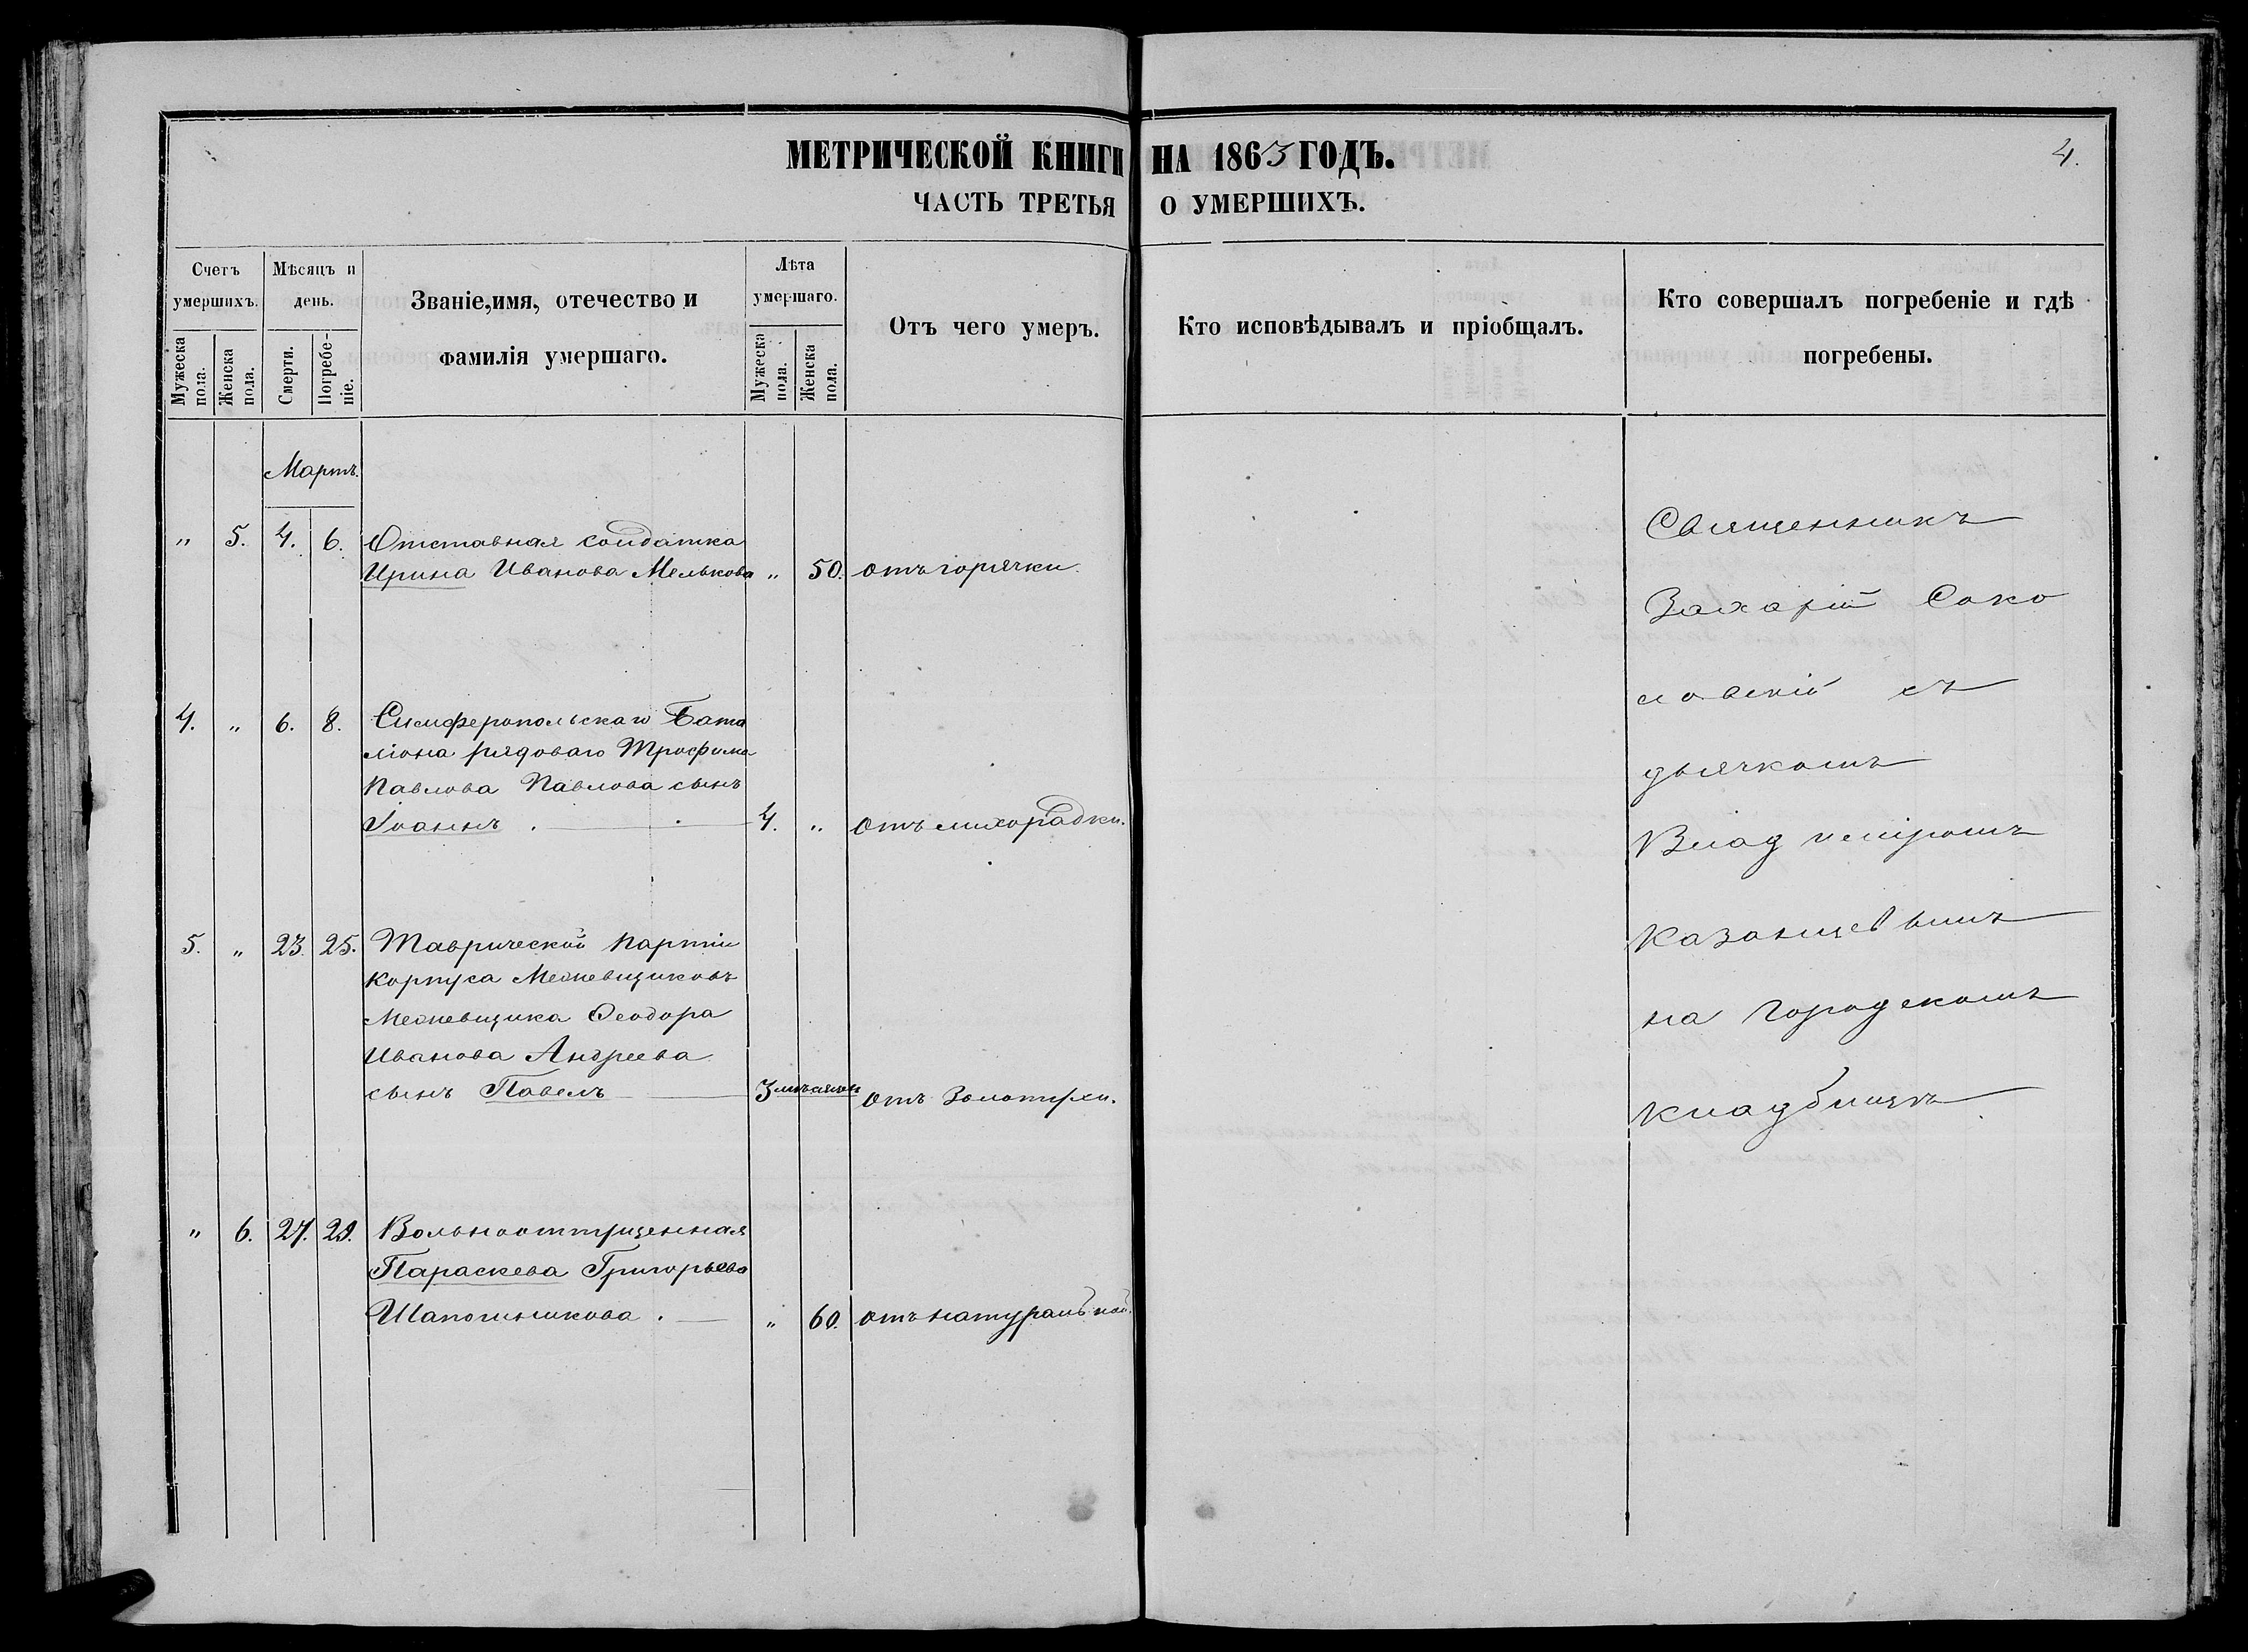 МЕТРИЧЕСКОЙ КНИГИ НА 1863 ГОДЪ.
4.
ЧАСТЬ ТРЕТЬЯ О УМЕРШИХЪ.
Счетъ умершихъ.
Мужеска пола.
Женска пола.
Мѣсяцъ и день.
Смерти.
Погребе-
ніе.
Званіе, имя, отечество и
фамилія умершаго.
Лѣта умершаго.
Мужеска пола.
Женска пола.
Отъ чего умеръ.
Кто исповѣдывалъ и пріобщалъ.
Кто совершалъ погребеніе и гдѣ
погребены.
Мартъ.
" 5. 4. 6. Отставная солдатка
Ирина Иванова Мелькова " 50. отъ горячки.
4. " 6. 8. Симферопольскаго Бата
ліона рядоваго Трофима
Павлова Павлова сынъ
Іоаннъ. 4. " отъ лихорадки.
5. " 23. 25. Таврической партіи
корпуса Межевщиковъ
Межевщика Ѳеодора
Иванова Андреева
сынъ Павелъ 3 отъ Золотухи.
" 6. 27. 29. Вольноотпущенная
Параскева Григорьева
Шапошникова. " 60. отъ натуральной.
Священникъ
Захарій Соко
ловскій съ
дьячкомъ
Влад
Казанцевымъ
на городскомъ
кладбищѣ